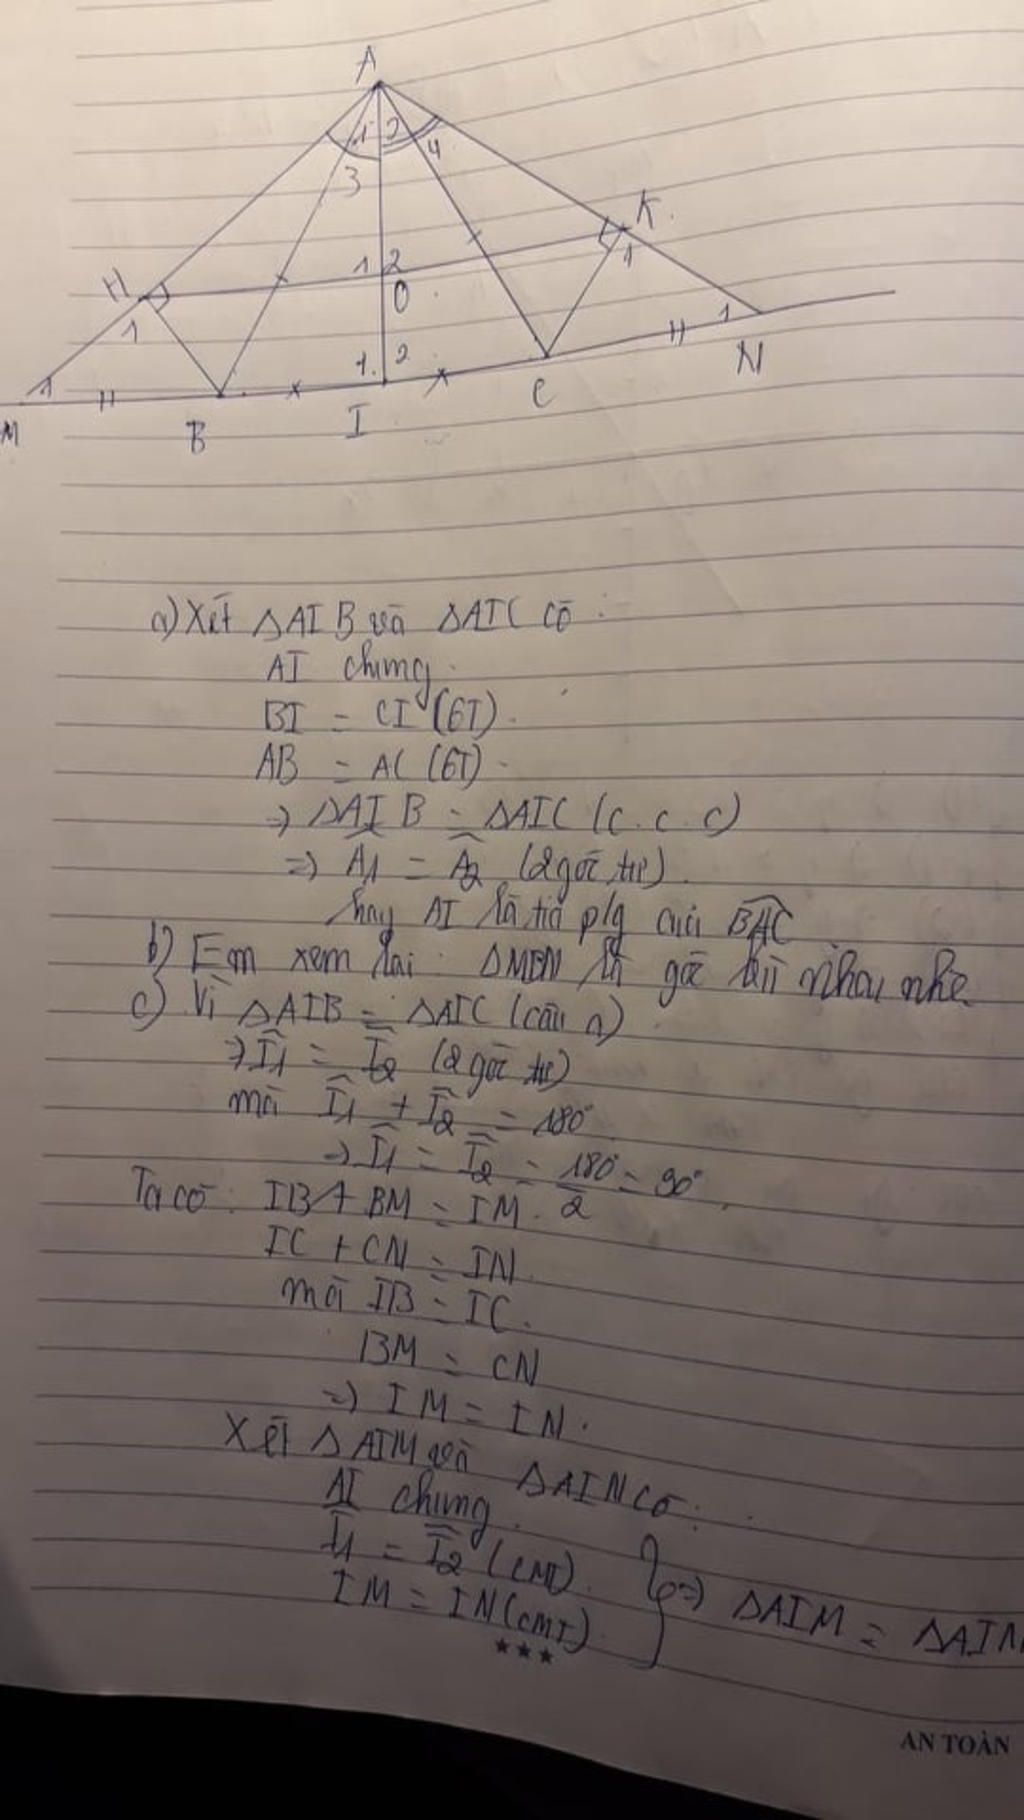 A
1 2
3 4
K
H
1 2
1
O
1
1
1 2
1
M
B
I
C
N
a) Xét ΔAIB và ΔAIC có :
AI chung.
BI = CI (GT).
AB = AC (GT).
=> ΔAIB = ΔAIC (c.c.c)
=> Â1 = Â2 (2 góc tư).
hay AI là tia p/g của BÂC
b) Em xem lại : góc nhau nhé
c) Vì ΔAIB = ΔAIC (câu a).
=> Î1 = Î2 (2 góc tư)
mà Î1 + Î2 = 180°
=> Î1 = Î2 = 180°/2 = 90°.
Ta có : IB + BM = IM.
IC + CN = IN.
mà IB = IC.
BM = CN
=> IM = IN.
Xét ΔAIM và ΔAIN có :
AI chung.
Î1 = Î2 (CMT).
IM = IN (CMT).
=> ΔAIM = ΔAIN
★★★
AN TOÀN